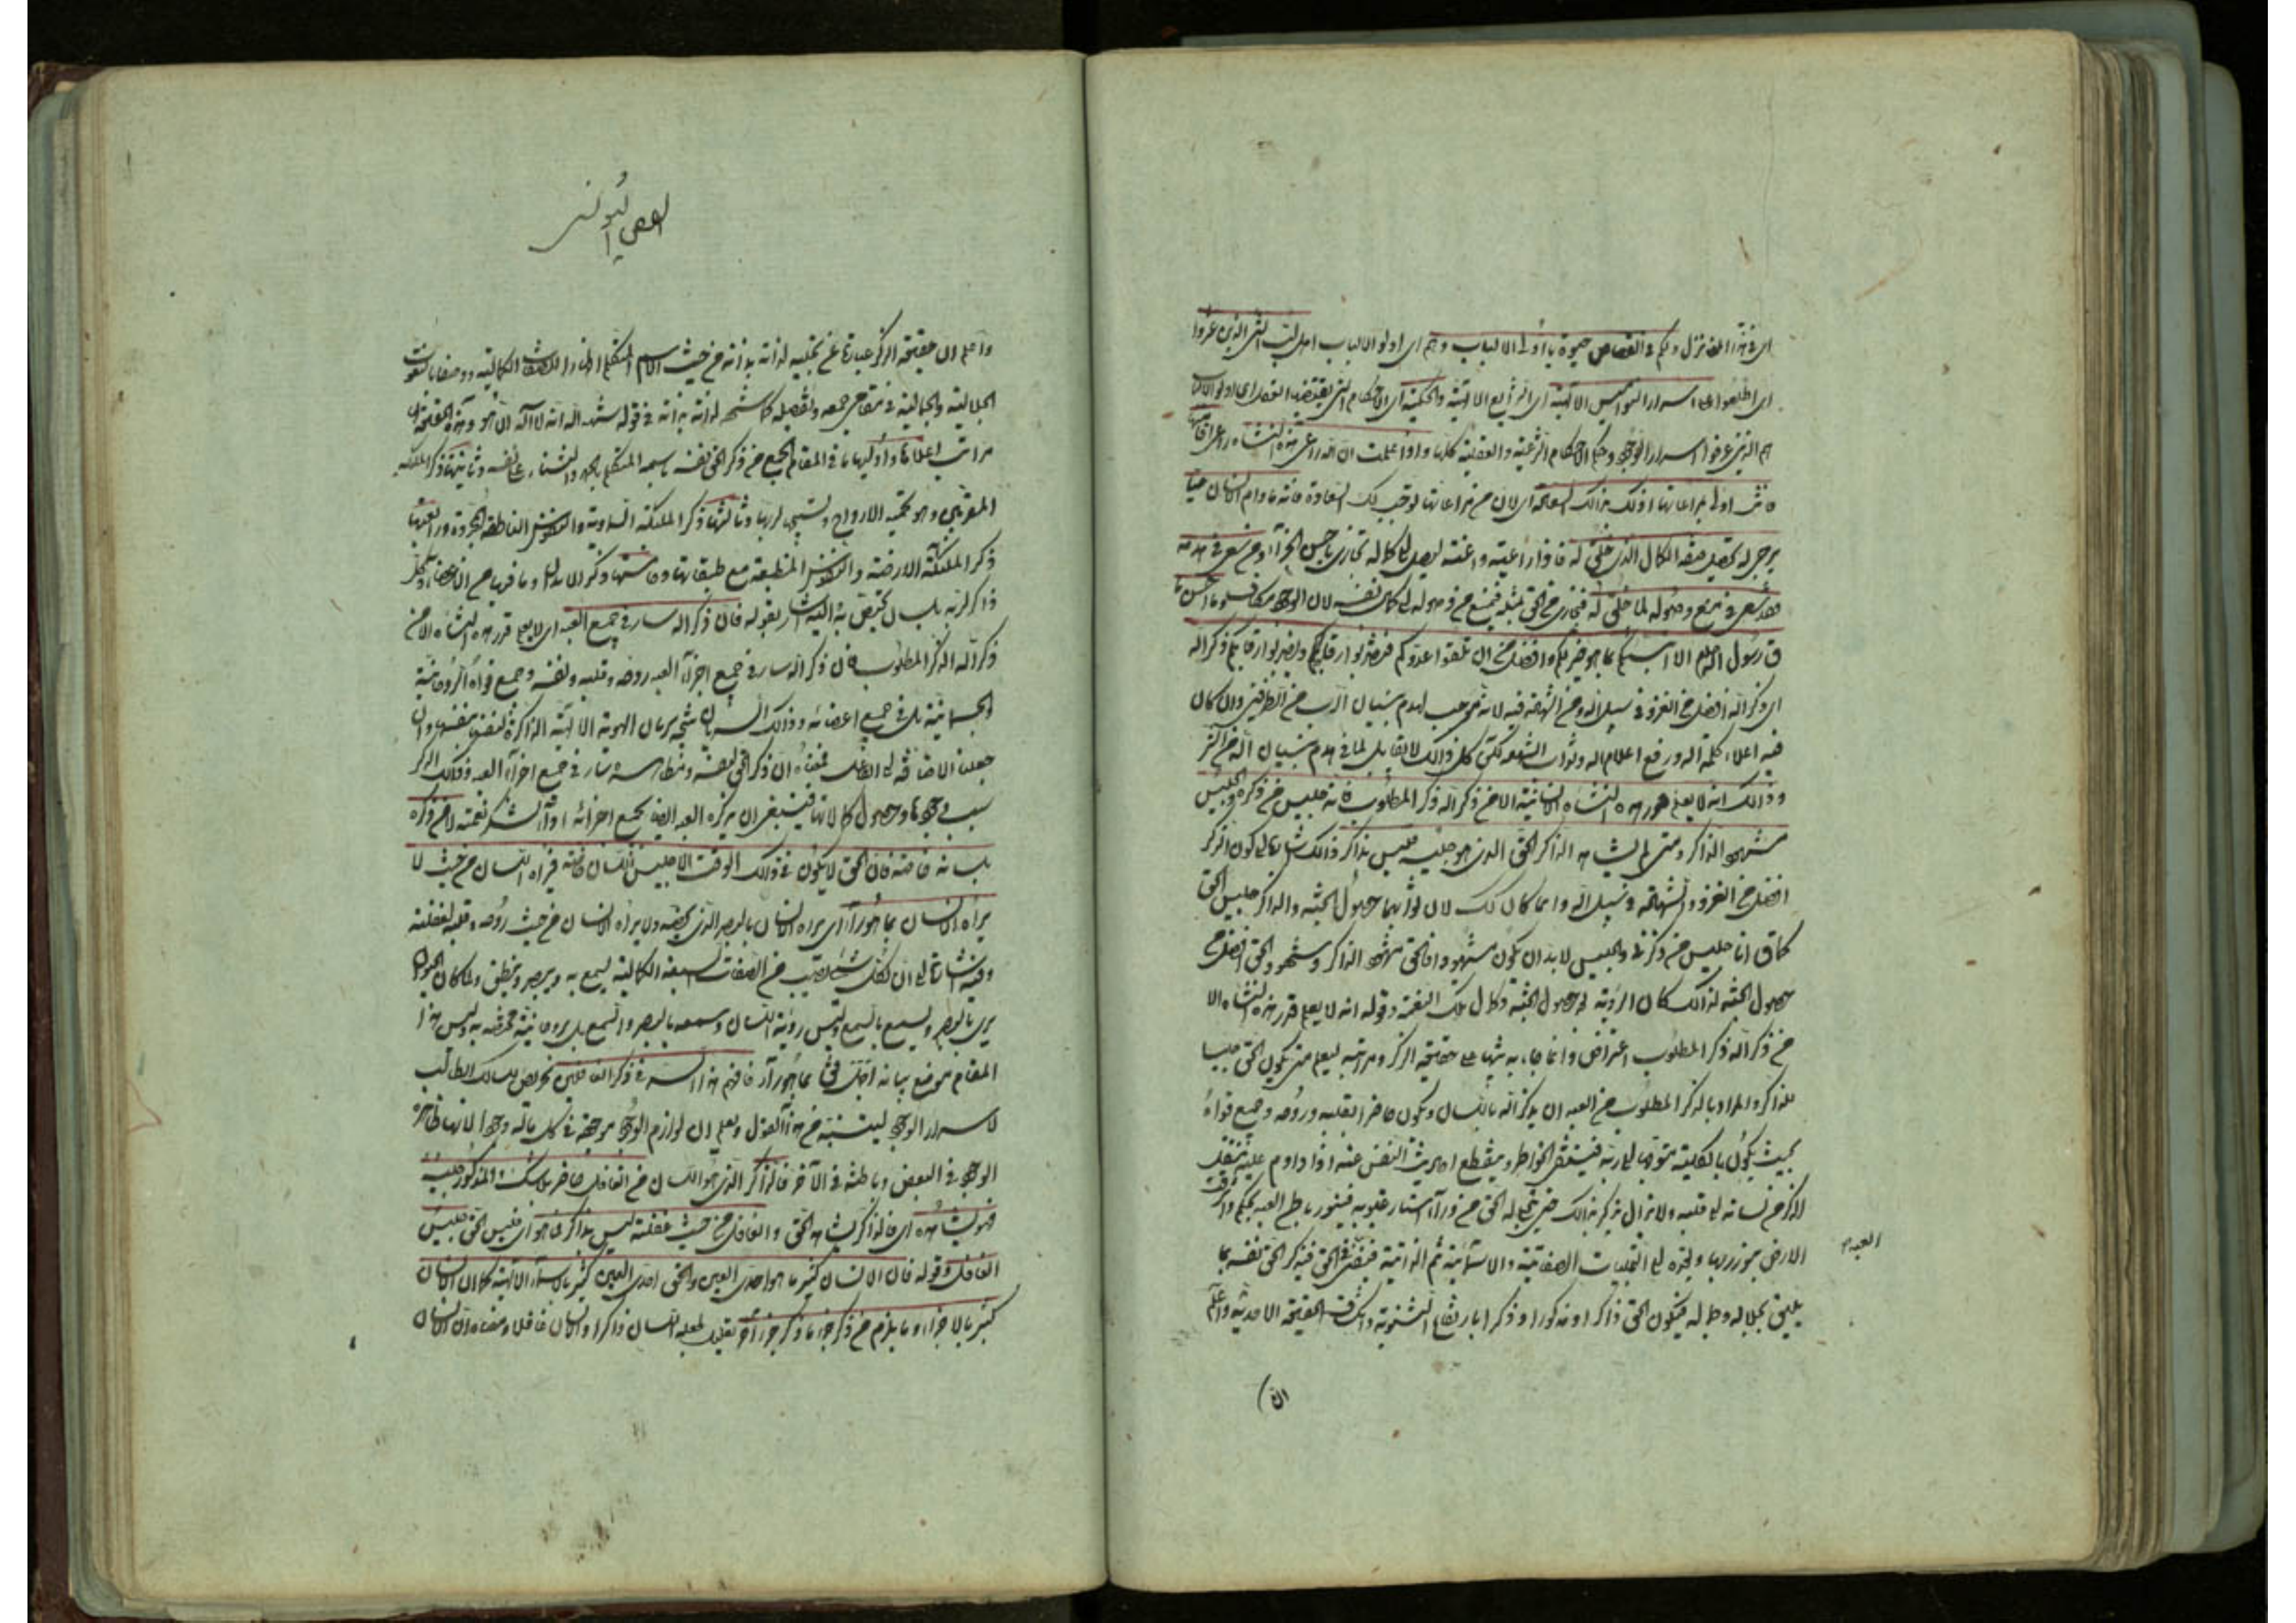 اى فى هذا المعنى نزل ولكم فى القصاص حيوة يا أولى الالباب وهم اى اولو الالباب اهل لب الشئ الذين عثروا
اى اطلعوا على اسرار النواميس الالهية اى الشرايع الالهية والحكمية اى الاحكام التى يقتضيها العقل اى اولو الالباب
هم الذين عرفوا اسرار الوجود وحكم الاحكام الشرعية والعقلية كلها واذا علمت ان الله راعى هذه النشاة وراعى اقامتها
فانت اولى بمراعاتها اذ لك بذلك السعادة اى لان من مراعاتها توجب لك السعادة فانه ما دام الانسان حيا
يرجى له تحصيل صفة الكمال الذى خلق له فاذا راعيته واعنته ليصل الى كماله تجازى باحسن الجزاء ومن سعى فى هدمه
فقد سعى فى منع وصوله لما خلق له فيجازى من الحق بمثله فيمنع من وصوله الى كمال نفسه لان الوجود مكاف وما احسن ما
قال رسول الله صلعم الا انبئكم بما هو خير لكم وافضل من ان تلقوا عدوكم فتضربوا رقابهم ويضربوا رقابكم ذكر الله
اى ذكر الله افضل من الغزو فى سبيل الله ومن الشهادة فيه لانه موجب لهدم بنيان الرب من الطرفين وان كان
فيه اعلاء كلمة الله ورفع اعلام الله وثواب الشهداء لكن كل ذلك لا يقابل لما فى هدم بنيان الله من الشر
وذلك انه لا يعلم قدر هذه النشاة الانسانية الا من ذكر الله ذكر المطلوب فانه جليس من ذكره والجليس
مشهود الذاكر ومتى لم يشاهد الذاكر الحق الذى هو جليسه فليس بذاكر ذلك اشارة الى كون الذكر
افضل من الغزو والشهادة فى سبيل الله وانما كان كذلك لان ثوابهما حصول الجنة والذاكر جليس الحق
كما قال انا جليس من ذكرنى والجليس لا بد ان يكون مشهودا فالحق مشهود الذاكر وشهود الحق افضل من
حصول الجنة لذلك كان الرؤية بعد حصول الجنة وكمال تلك النعمة وقوله انه لا يعلم قدر هذه النشاة الا
من ذكر الله ذكر المطلوب اعتراض وانما جاء به تنبيها على حقيقة الذكر ومراتبه ليعلم متى يكون الحق جليسا
للذاكر والمراد بالذكر المطلوب من العبد ان يذكر الله باللسان ويكون حاضرا بقلبه وروحه وجميع قواه
بحيث يكون بالكلية متوجها الى ربه فينتفى الخواطر وينقطع احاديث النفس عنه اذا داوم عليه ينتقل
الذكر من لسانه الى قلبه ولا يزال يذكر بذلك حتى يتجلى له الحق من ورآء استار غيوبه فينور باطن العبد بحكم واشرقت
الارض بنور ربها ويجره الى التجليات الصفاتية والاسمائية ثم الذاتية فيفنى فى الحق فيذكر الحق نفسه بما
العبد
يليق بجلاله وجماله فيكون الحق ذاكرا ومذكورا وذكرا بارتفاع الثنوية وانكشاف الحقيقة الاحدية واعلم
ان
الفص اليونسى
واعلم ان حقيقة الذكر عبارة عن تجليه لذاته بذاته من حيث الاسم المتكلم اظهارا للصفات الكمالية ووصفا بالنعوت
الجلالية والجمالية فى مقامى جمعه وتفصيله كما شهد لذاته بذاته فى قوله شهد الله انه لا اله الا هو وهذه الحقيقة لها
مراتب اعلاها وأوليها ما فى المقام الجمع من ذكر الحق نفسه باسمه المتكلم بالحمد والثناء على نفسه وثانيتها ذكر الملئكة
المقربين وهو تحميد الارواح وتسبيحها لربها وثالثتها ذكر الملئكة السماوية والنفوس الناطقة المجردة ورابعتها
ذكر الملئكة الارضية والنفوس المنطبعة مع طبقاتها وخامستها ذكر الابدان وما فيها من الاعضاء وكل
ذاكر لربه بلسان يختص به اليه اشار بقوله فان ذكر الله سار فى جميع العبد اى لا يعلم قدر هذه النشاة الا من
ذكر الله الذكر المطلوب فان ذكر الله سار فى جميع اجزاء العبد روحه وقلبه ونفسه وجميع قواه الروحانية
والجسمانية بل فى جميع اعضائه وذلك السريان نتيجة سريان الهوية الالهية الذاكرة لنفسها بنفسها وان
جعلنا الاضافة الى الفاعل فمعناه ان ذكر الحق لنفسه ومظاهره سار فى جميع اجزاء العبد وذلك الذكر
سبب وجودها وحصول كمالاتها فينبغى ان يذكره العبد ايضا بجميع اجزائه اداء لشكر نعمته لا من ذكره
بلسانه خاصة فان الحق لا يكون فى ذلك الوقت الا جليس اللسان خاصة فيراه اللسان من حيث لا
يراه الانسان بما هو راء اى يراه اللسان بالبصر الذى يخصه ولا يراه الانسان من حيث روحه وقلبه لغفلته
وفيه اشارة الى ان لكل شئ نصيب من الصفات السبعة الكمالية يسمع به ويبصر وينطق ولما كان الحيوان
يرى بالبصر ويسمع بالسمع وليس رؤية اللسان وسمعه بالبصر والسمع بل بروحانية مختصة به وليس هذا
المقام موضع بيانه اجمل فقال بما هو راء فافهم هذا السر فى ذكر الغافلين تحريض للسالك الطالب
لاسرار الوجود ليتنبه من هذا القول ويعلم ان لوازم الوجود موجودة فى كل ما له وجود الا انها ظاهرة
الوجود فى البعض وباطنة فى الآخر فالذاكر الذى هو اللسان من الغافل حاضر بلا شك والمذكور جليسه
فهو يشاهده اى فالذاكر يشاهد الحق والغافل من حيث غفلته ليس بذاكر فما هو اى فليس الحق جليس
الغافل وقوله فان الانسان كثير ما هو احدى العين والحق احدى العين كثير بالاسماء الالهية كما ان الانسان
كثير بالاجزاء وما يلزم من ذكر جزء ما ذكر جزء آخر تعليل لجعله اللسان ذاكرا والانسان غافلا ومعناه ان الانسان